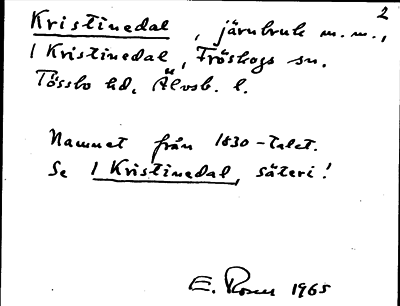 2
Kristinedal, järnbruk m.m.,
1 Kristinedal, Fröskogs sn.
Tössbo hd, Älvsb. l.
Namnet från 1830-talet.
Se 1 Kristinedal, säteri!
E. Rosén 1965